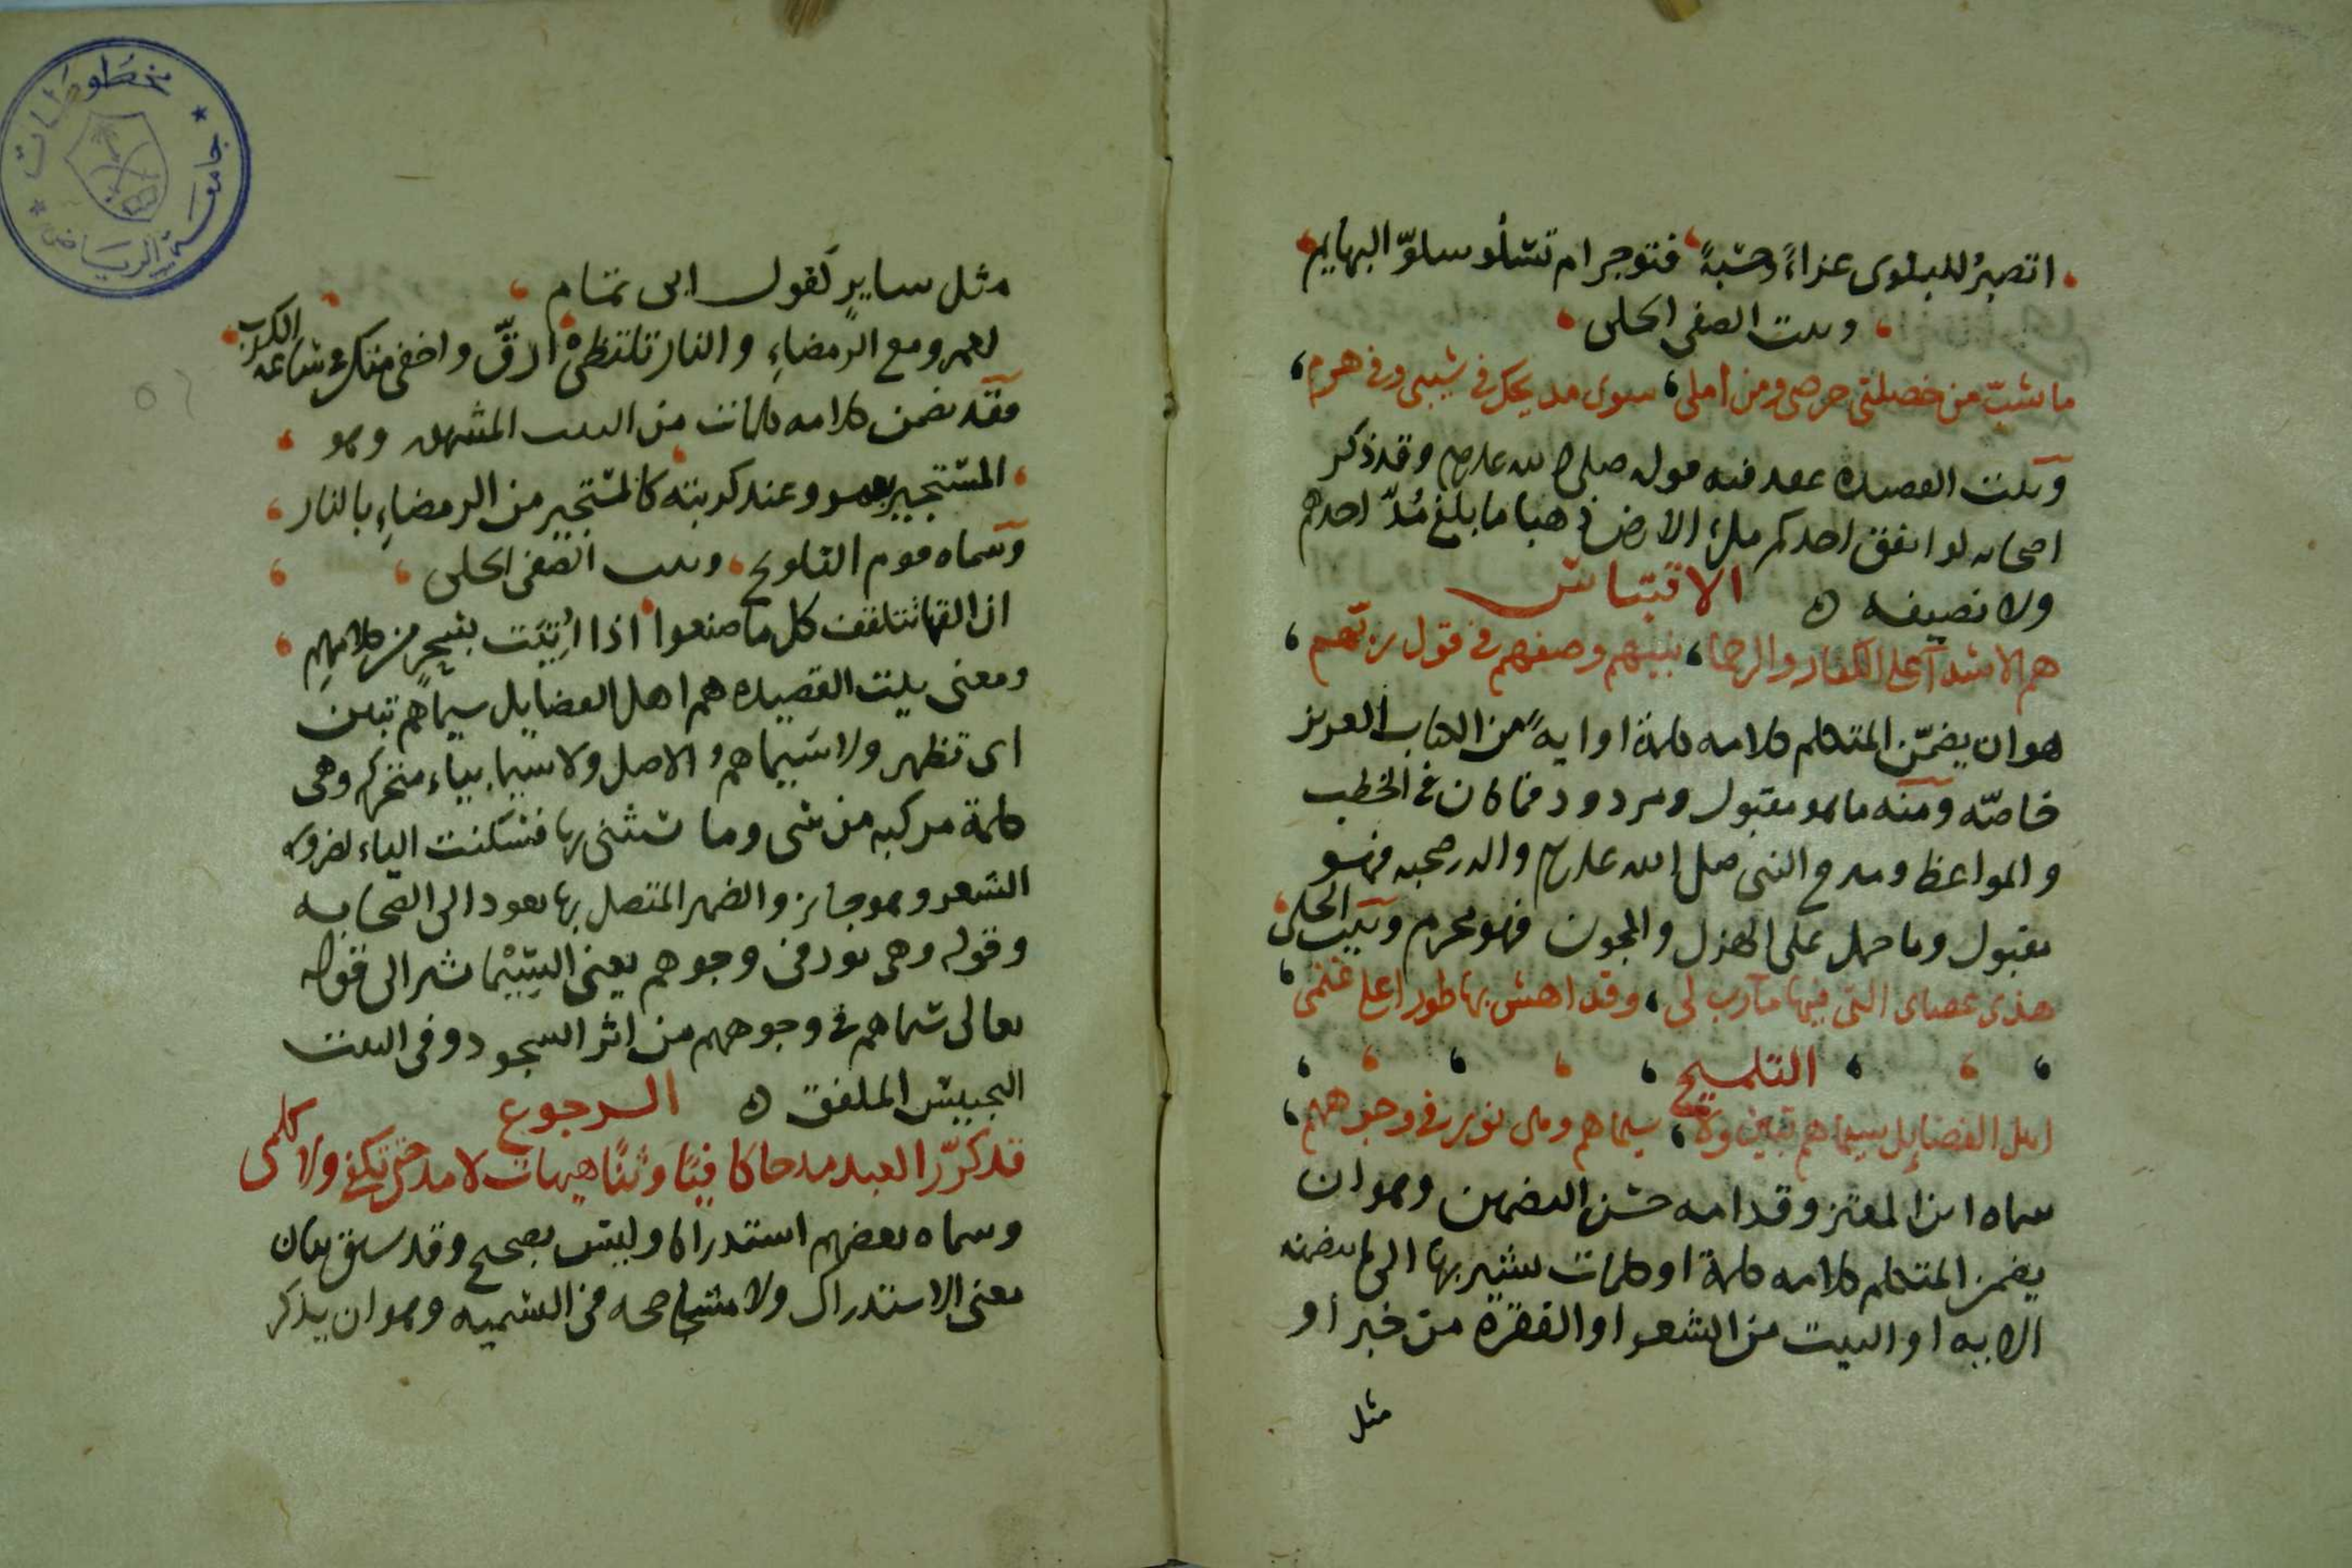 اتصبرُ للبلوى عزاءً وحسبةً فتوجر ام تسلو سلوّ البهايم
وبيت الصفى الحلى
ما شبّ من خصلتى حرصى ومن املى سوى مديحك فى شيبى وفى هرمى
وبيت القصيده عقد فيه قوله صلى الله عليه وسلم وقد ذكر
اصحابه لو انفق احدكم ملئ الارض ذهبا ما بلغ مُدّ احدهم
ولا نصيفه ه الاقتباس
هم الاشدآ على الكفار والرحما بينهم وصفهم فى قول ربّهم
هو ان يضمّن المتكلم كلامه كلمة او ايةً من الكتاب العزيز
خاصّه ومنه ما هو مقبول ومردود فما كان فى الخطب
والمواعظ ومدح النبى صلى الله عليه وسلم واله وصحبه فهو
مقبول وما حمل على الهزل والمجون فهو محرم وبيت الحلى
هذى عصاى التى فيها مآرب لى وقد اهش بها طورا على غنمى
التلميح
اهل الفضايل سيماهم تبين ولا سيماهم وهى نور فى وجوههم
سماه ابن المعتز وقدامه حسن التضمين وهو ان
يضمن المتكلم كلامه كلمة او كلمات يشير بها الى ما تضمنه
الايه او البيت من الشعر او الفقرة من خبر او
مثل
مثل سايرٍ كقول ابى تمام
لعمرو مع الرمضاءِ والنار تلتظى ارقّ واحفى منك فى ساعة الكرب
فقد ضمن كلامه كلمات من البيت المشهور وهو
المستجير بعمرو عند كربته كالمستجير من الرمضاءِ بالنار
وسماه قوم التلويح وبيت الصفى الحلى
ان القها تتلقف كل ما صنعوا اذا اُتيت بسحرٍ من كلامهم
ومعنى بيت القصيده هم اهل الفضايل سيماهم تبين
اى تظهر ولا سيماهمُ الاصل ولا سيما بياء متحركه وهى
كلمة مركبه من سى وما يستثنى بها فسكنت الياء لضرورة
الشعر وهو جايز والضمير المتصل بها يعود الى الصحابه
وقوله وهى نور فى وجوههم يعنى السِّيْما يشير الى قوله
تعالى سيماهم فى وجوههم من اثر السجود وفى البيت
التجنيس الملفق ه الرجوع
قد كرّر العبد مدحا كافيًا وثنًا هيهات لا مدحتى تكفى ولا كلمى
وسماه بعضهم استدراكا وليس بصحيح وقد سبق بيان
معنى الاستدراك ولا مشاححه فى التسميه وهو ان يذكر
مخطوطات
جامعة الرياض
٥٢